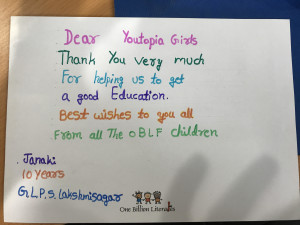 Dear Youtopia Girls
Thank You very much
For helping us to get
a good Education.
Best wishes to you all
From all The OBLF children
Janaki
10 Years
G.L.P.S. Lakshmisagar
One Billion Literates